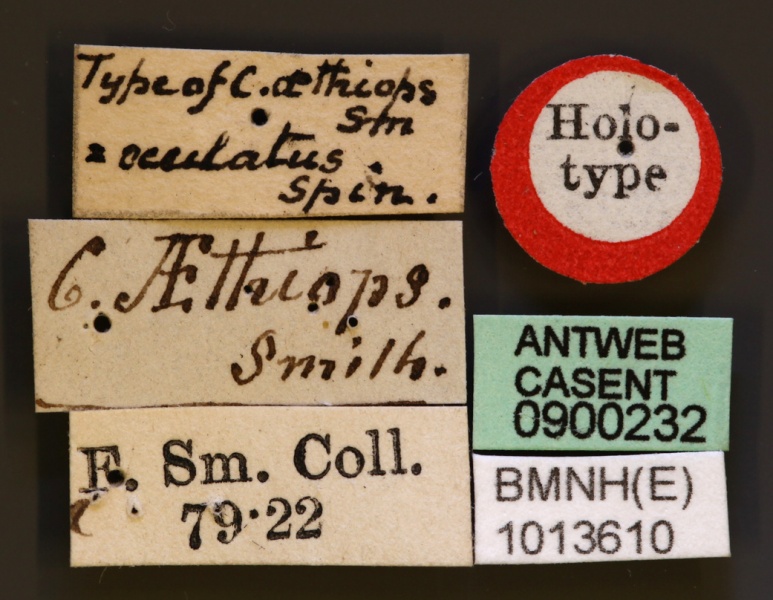 Type of C. æthiops
Sm
= oculatus.
Spin.
C. Æthiops.
Smith.
F. Sm. Coll.
79·22
Holo-
type
ANTWEB
CASENT
0900232
BMNH(E)
1013610